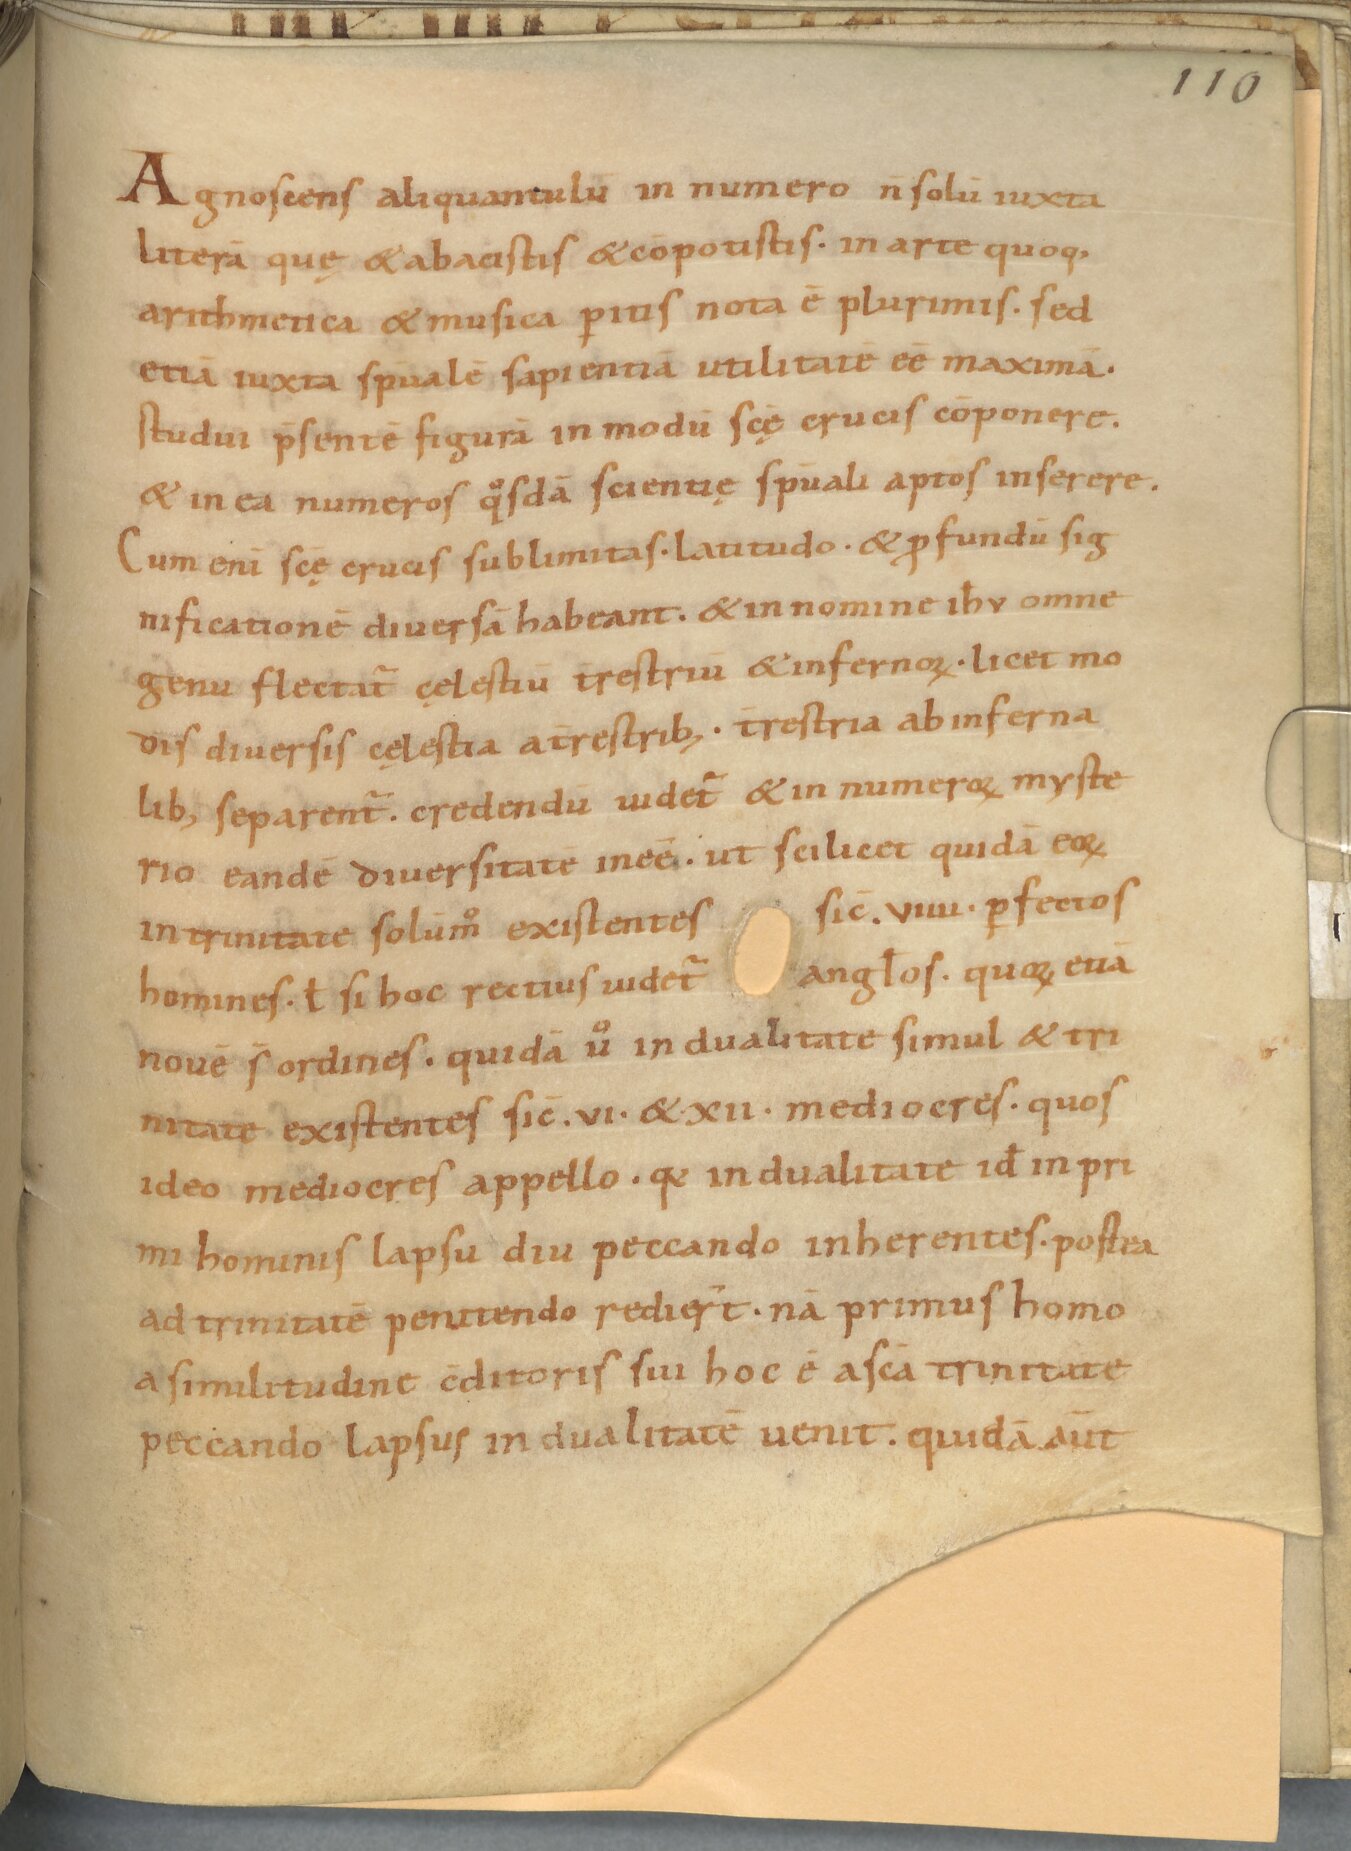 110
Agnoscens aliquantulū in numero n̄ solū iuxta
literā quę & abacistis & cōpotistis· in arte quoq,
arithmetica & musica ꝑitis nota ē plurimis· sed
etiā iuxta sp̄ualē sapientiā utilitatē eē maximā·
studui p̄sentē figurā in modū scę̄ crucis cōponere·
& in ea numeros qͦsdā scientię sp̄uali aptos inserere·
Cum enī scę̄ crucis sublimitas· latitudo· & ꝓfundū sig
nificationē diuersā habeant· & in nomine ih̄v omne
genu flectat᷑ cęlestiū t̄restriū & infernoꝝ· licet mo
dis diuersis cęlestia a t̄restrib,· t̄restria ab inferna
lib, separent᷑· credendū uidet᷑ & in numeroꝝ myste
rio eandē diuersitatē ineē· ut scilicet quidā eoꝝ
in trinitate solūm̊ existentes sic̄· viiii· ꝑfectos
homines· ł si hoc rectius uidet᷑ angƚos· quoꝝ etiā
nouē s̄ ordines· quidā ů in dualitate simul & tri
nitate existentes sic̄· vi· & xii· mediocres· quos
ideo mediocres appello· qꝛ in dualitate id̵ in pri
mi hominis lapsu diu peccando inherentes· postea
ad trinitatē penitendo redier̄t· nā primus homo
a similitudine c̄ditoris sui hoc ē a scā trinitate
peccando lapsus in dualitatē uenit· quidā aūt